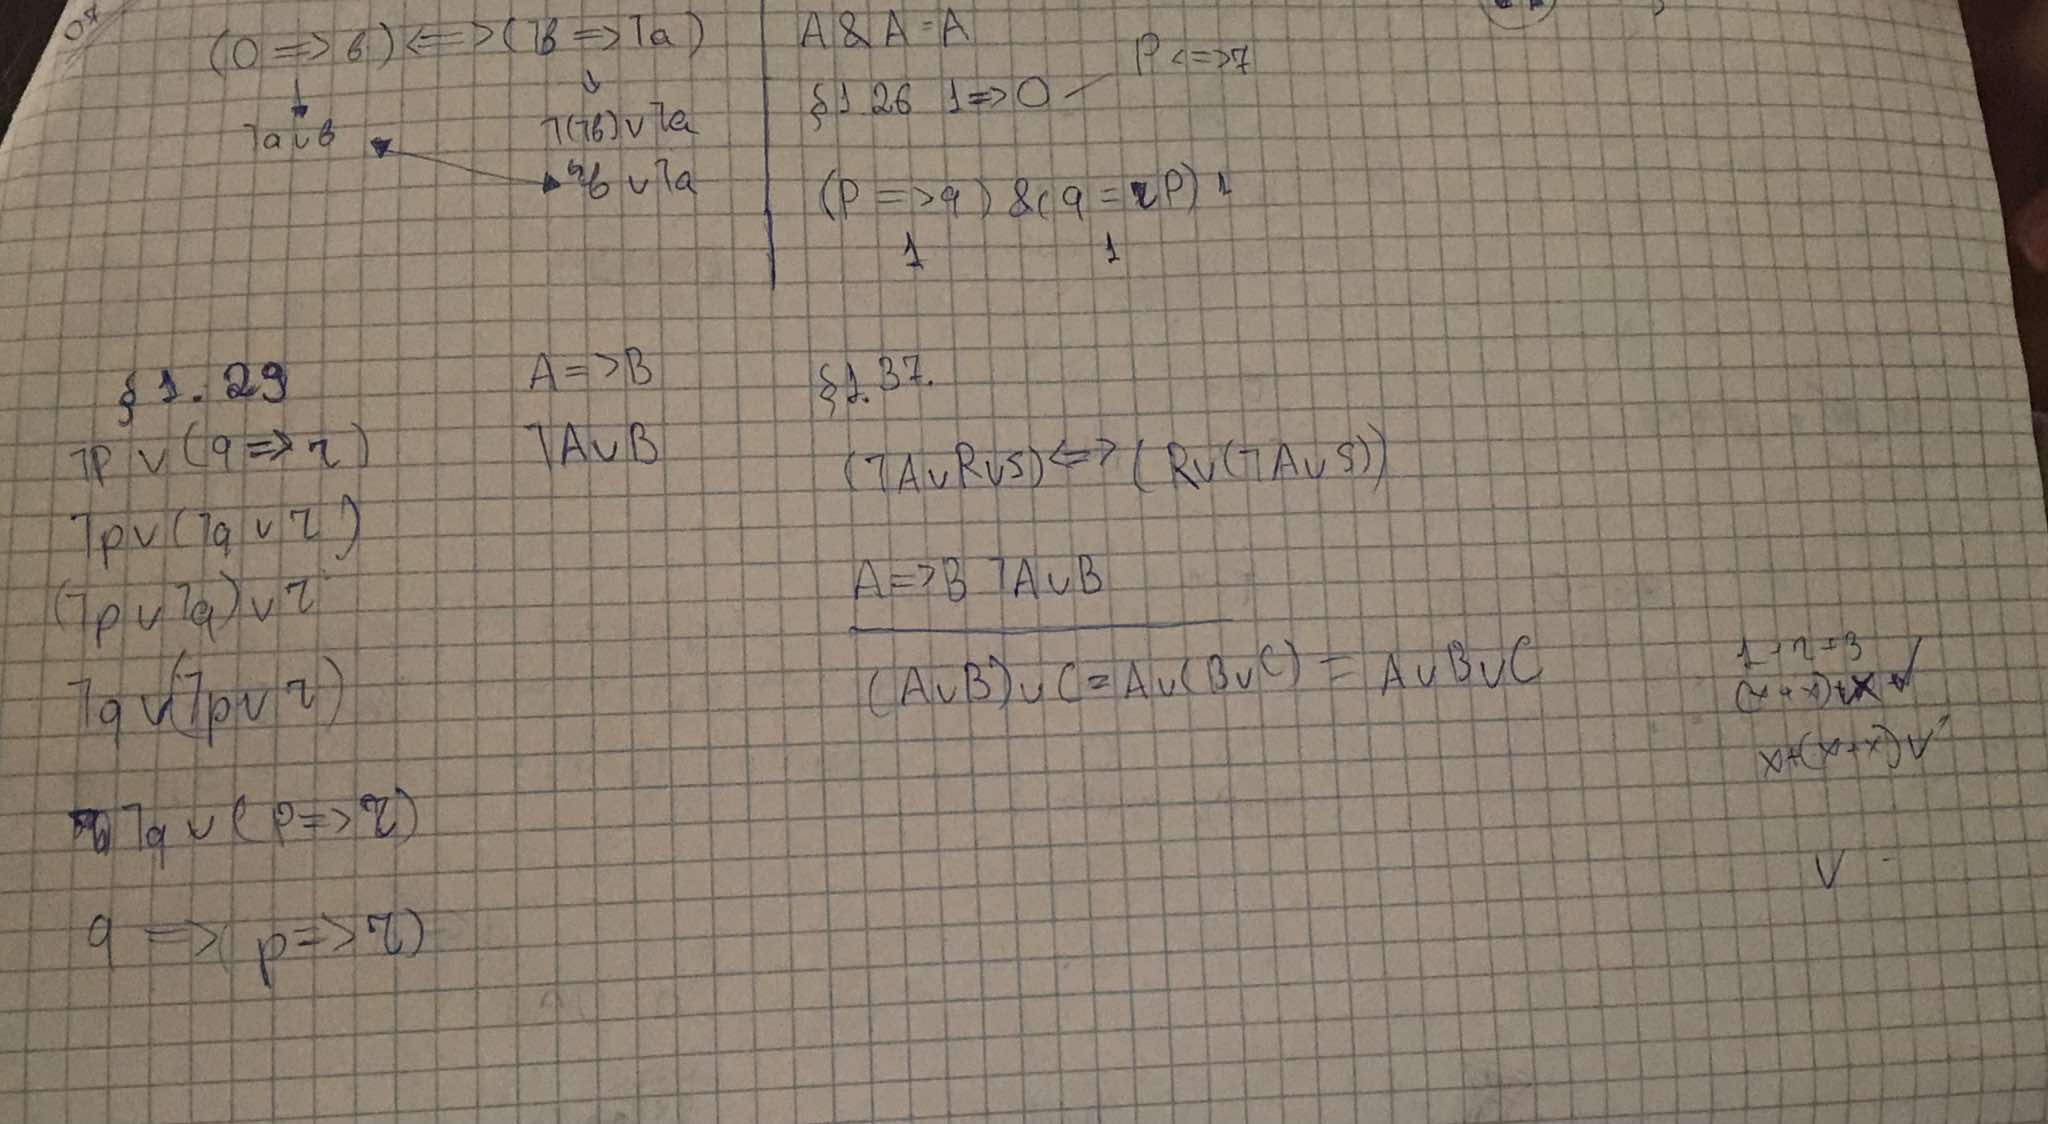 (0 => b) <=> (¬b => ¬a)
¬a∨b
¬(¬b)∨¬a
b ∨¬a
A & A = A
P <=> 7
§1.26 1 => 0
(P => q) & (q = 2P) 1
1 1
§1.29
¬p ∨ (q => r)
¬p∨(¬q ∨ r)
(¬p∨¬q)∨r
¬q∨(¬p∨r)
¬q ∨ (p => r)
q => (p => r)
A => B
¬A∨B
§1.37.
(¬A∨R∨S) <=> (R∨(¬A∨S))
A => B ¬A∨B
(A∨B)∨C = A∨(B∨C) = A∨B∨C
∨